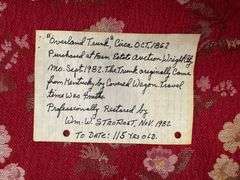 "Overland Trunk" Circa OCT. 1862
Purchased at Farm Estate Auction Wright City
Mo. Sept. 1982. The Trunk originally Came
from Kentucky by Covered Wagon. Travel
time Was 4 mths
Professionally Restored by
Wm. W. Nov. 1982
TO DATE: 115 YRS OLD.